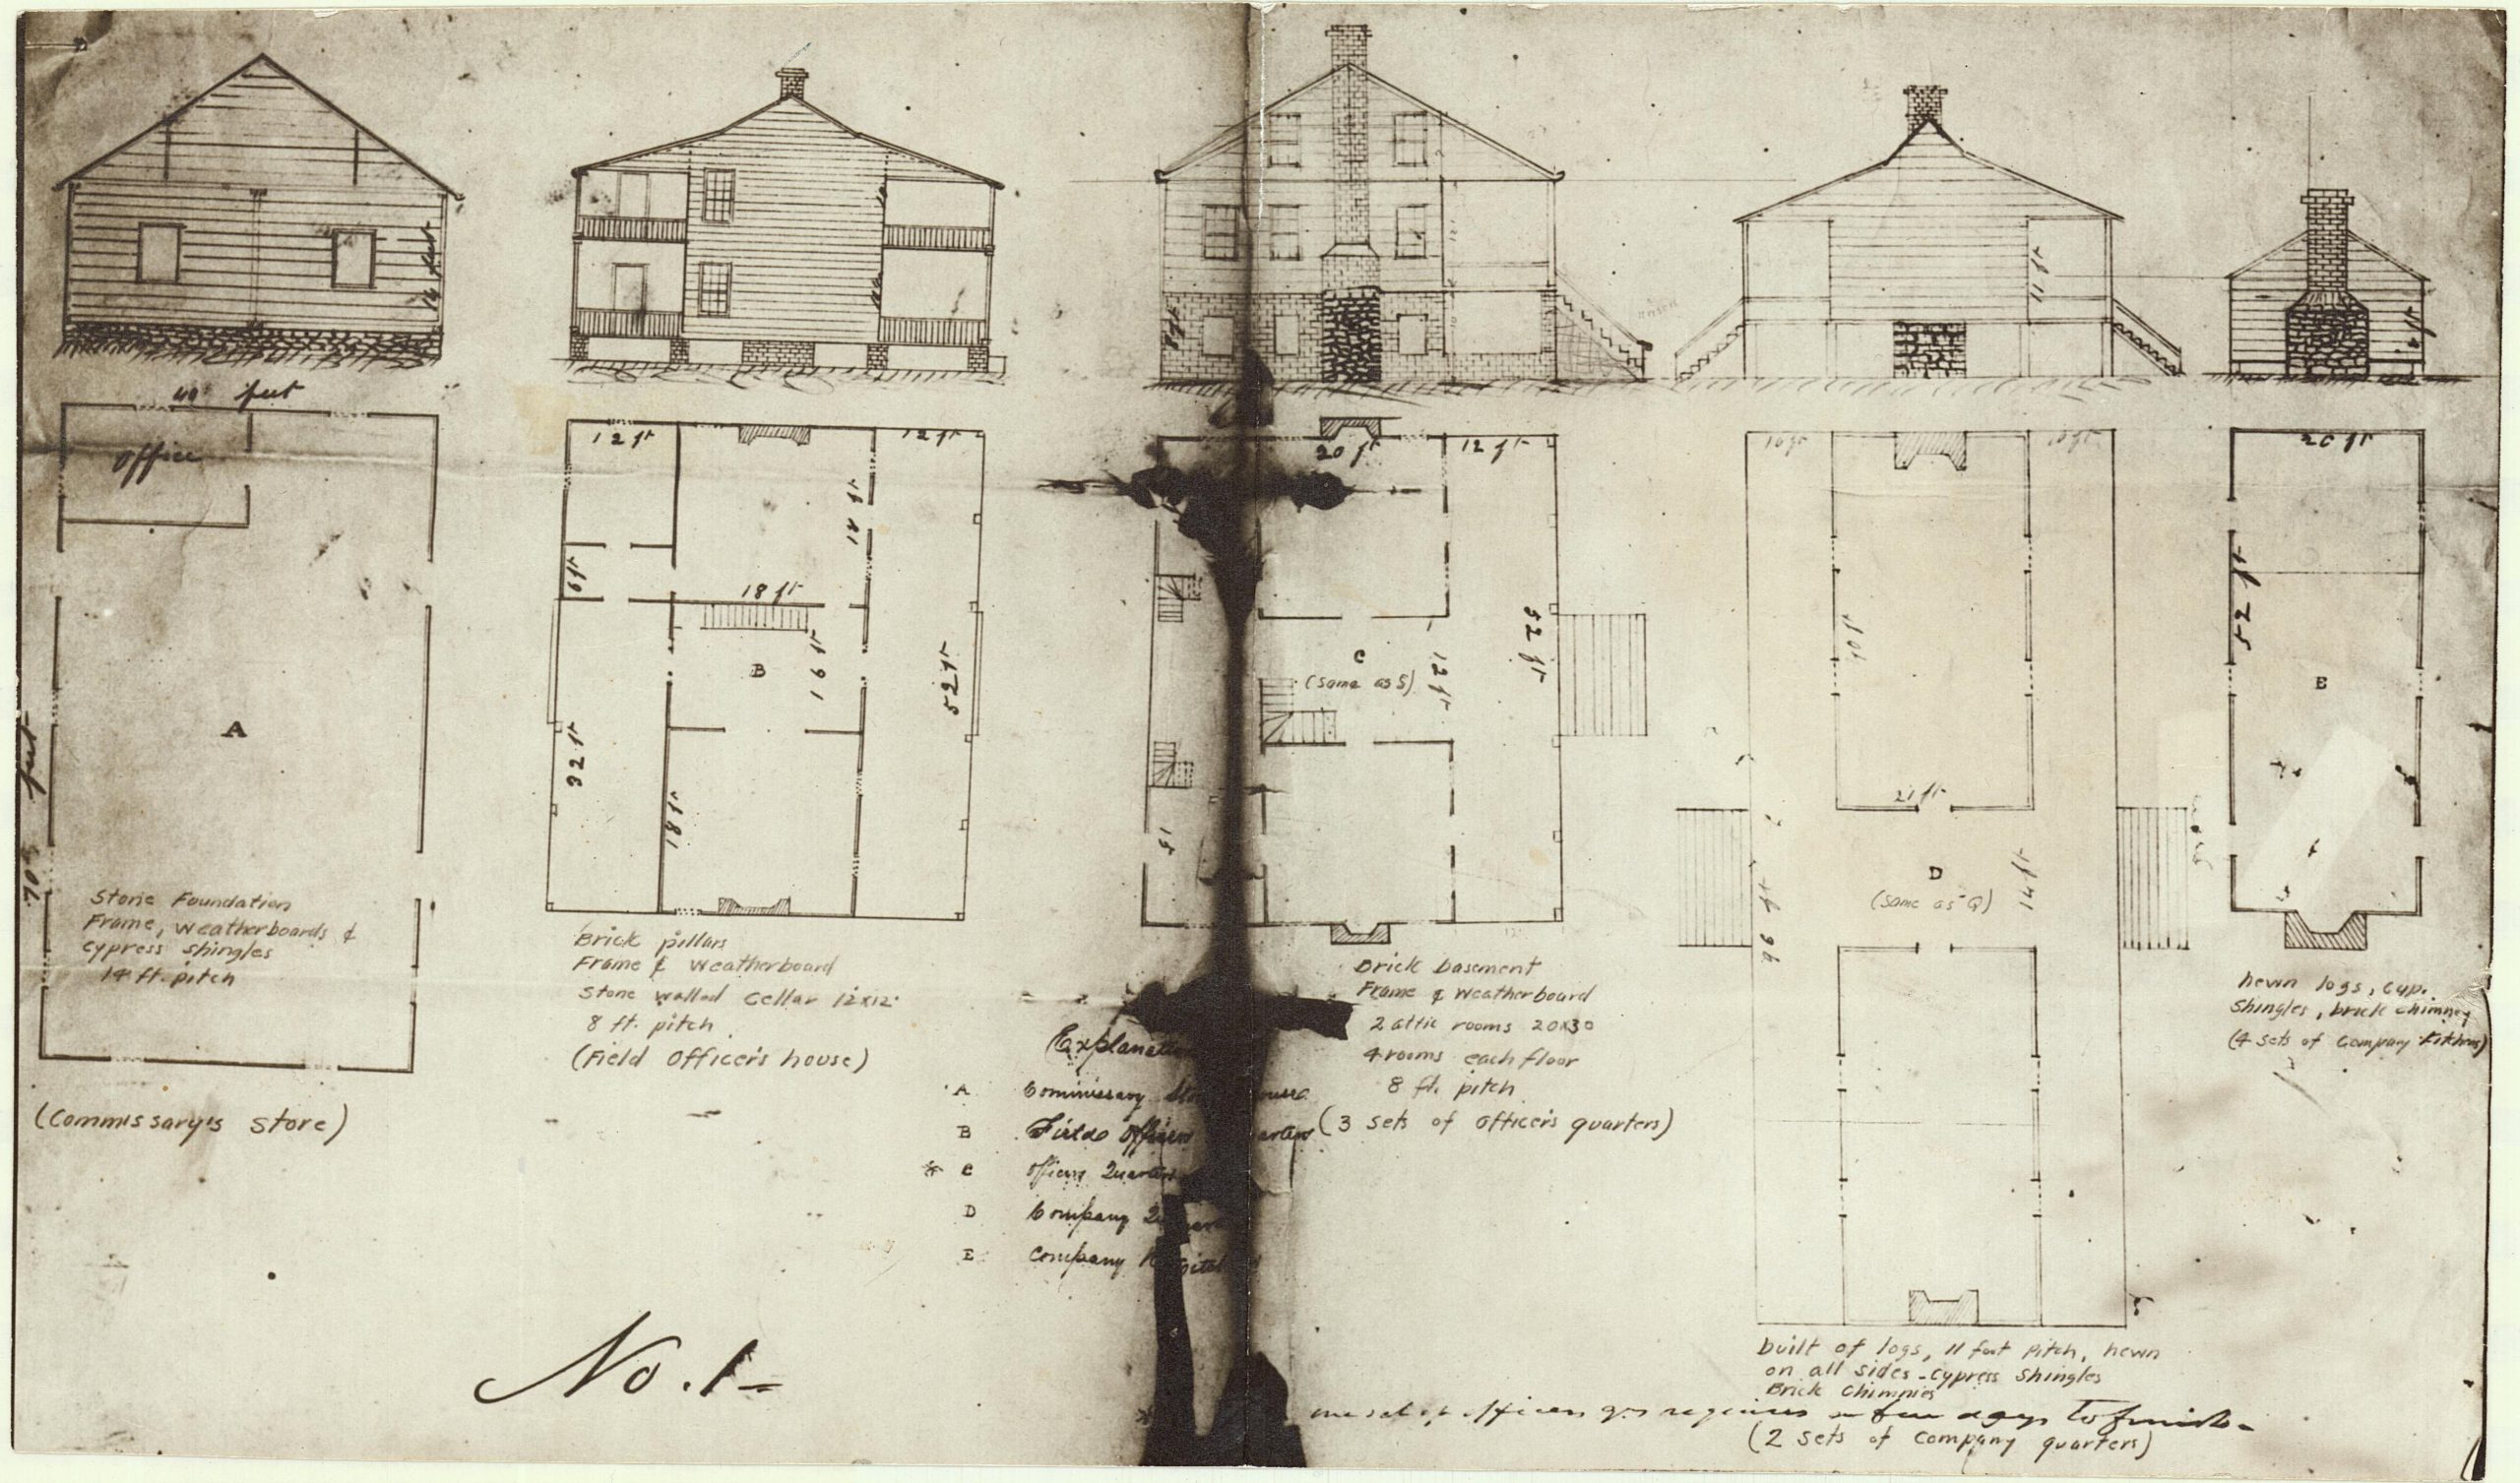 14 feet
8 ft
11 ft
40 feet
office
A
70 feet
Stone Foundation
Frame, weatherboards &
cypress shingles
14 ft. pitch
(Commissary's Store)
12 ft
12 ft
18 ft
6 ft
18 ft
B
16 ft
52 ft
32 ft
18 ft
Brick pillars
Frame & weatherboard
Stone walled Cellar 12x12'
8 ft. pitch
(Field Officer's house)
20 ft
12 ft
C
(Same as S)
12 ft
52 ft
Brick basement
Frame & weatherboard
2 attic rooms 20x30
4 rooms each floor
8 ft. pitch
(3 sets of officer's quarters)
10 ft
10 ft
21 ft
D
(Same as Q)
14 ft
96 ft
built of logs, 11 foot pitch, hewn
on all sides - cypress shingles
Brick Chimnies
(2 sets of Company quarters)
20 ft
52 ft
E
hewn logs, cyp.
Shingles, brick chimney
(4 sets of Company Kitchens)
Explanation
A Commissary Store house
B Field Officers Quarters
* C Officers Quarters
D Company Quarters
E Company Kitchen
No. 1 -
* one set of officers qrs requires a few days to finish -